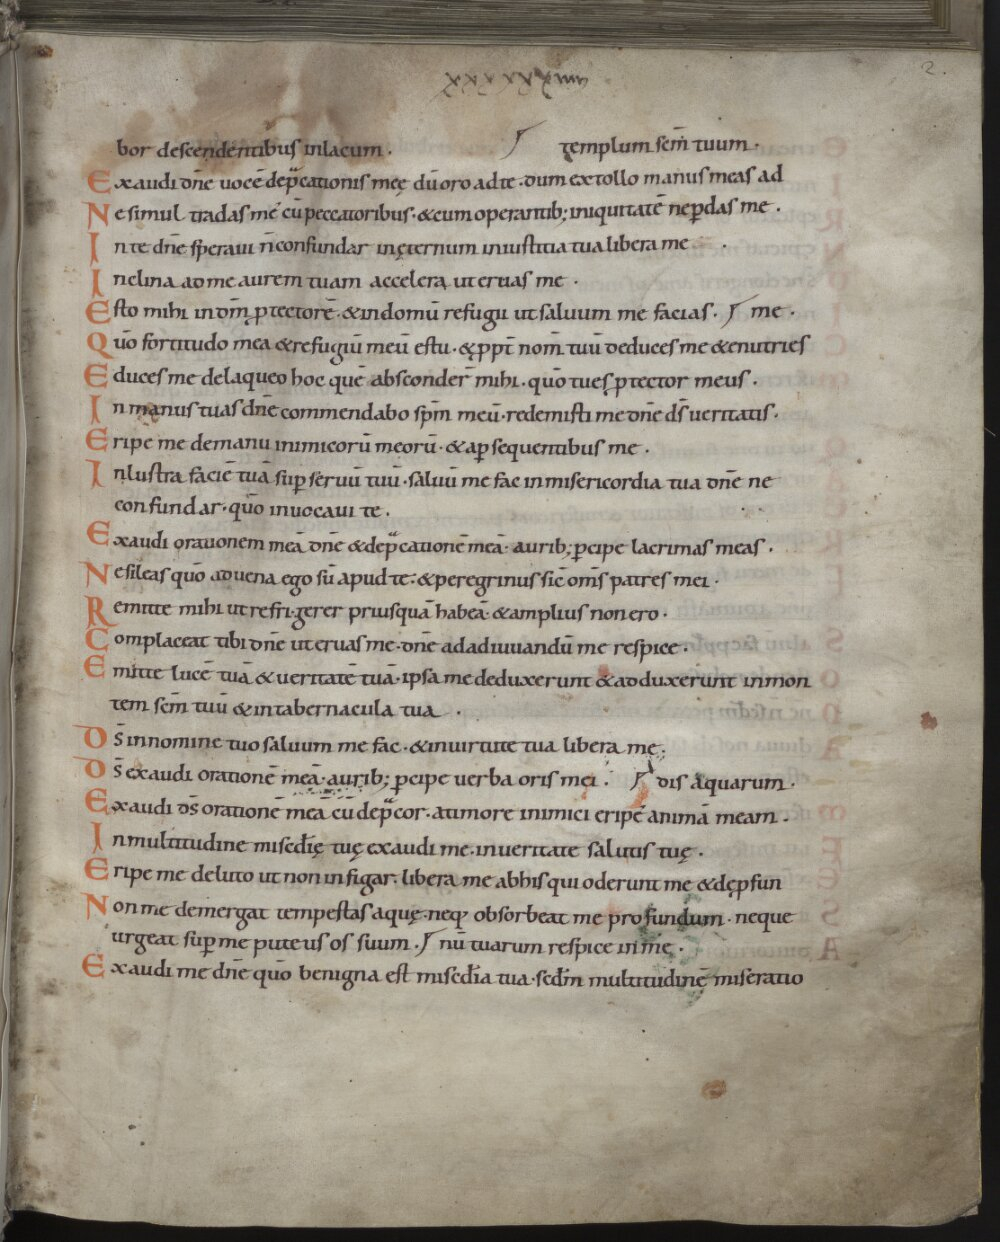 2.
bor descendentibus inlacum . templum scm̄ tuum .
Exaudi dn̄e uocē dep̄cationis meę dū oro ad te . dum extollo manus meas ad
Ne simul tradas me cū peccatoribus . & cum operantib; iniquitatē ne ꝑdas me .
In te dn̄e speraui n̄ confundar in ęternum in iustitia tua libera me .
Inclina ad me aurem tuam accelera ut eruas me .
Esto mihi in dm̄ ꝓtectorē . & in domū refugii ut saluum me facias . me .
Quō fortitudo mea & refugiū meū es tu . & ꝓpt̄ nom̄ tuū deduces me & enutries
Educes me de laqueo hoc quē absconder̄ mihi . quō tu es ꝓtector meus .
In manus tuas dn̄e commendabo spm̄ meū . redemisti me dn̄e ds̄ ueritatis .
Eripe me de manu inimicorū meorū . & a ꝑsequentibus me .
Inlustra faciē tuā sup̄ seruū tuū . saluū me fac in misericordia tua dn̄e ne
confundar . quō inuocaui te .
Exaudi orationem meā dn̄e & dep̄cationē meā . aurib; ꝑcipe lacrimas meas .
Ne sileas quō aduena ego sū apud te . & peregrinus sic̄ om̄s patres mei .
Remitte mihi ut refrigerer priusquā habeā . & amplius non ero .
Complaceat tibi dn̄e ut eruas me . dn̄e ad adiuuandū me respice .
Emitte lucē tuā & ueritatē tuā . ipsa me deduxerunt & adduxerunt in mon
tem scm̄ tuū & in tabernacula tua .
Ds̄ in nomine tuo saluum me fac . & in uirtute tua libera me .
Ds̄ exaudi orationē meā . aurib; ꝑcipe uerba oris mei . dis aquarum .
Exaudi ds̄ orationē meā cū dep̄cor . a timore inimici eripe animā meam .
In multitudine misedīę tuę exaudi me . in ueritate salutis tuę .
Eripe me de luto ut non infigar . libera me ab his qui oderunt me & de ꝓfun
Non me demergat tempestas aquę . neq; obsorbeat me profundum . neque
urgeat sup̄ me puteus os suum . nū tuarum respice in me .
Exaudi me dn̄e quō benigna est misedīa tua . sedm̄ multitudinē miseratio